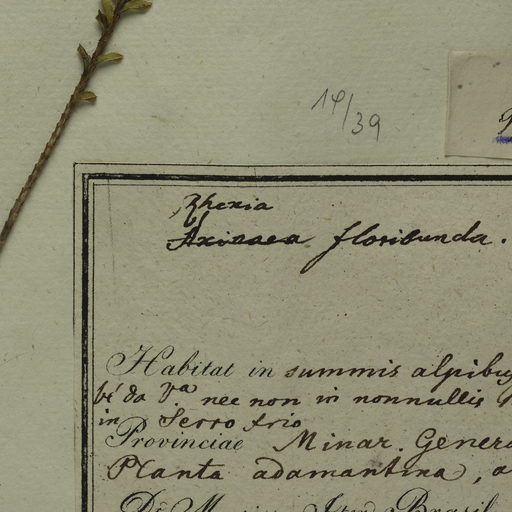 14/39
Rhexia
Axinaea floribunda.
Habitat in summis alpibus
bé da V.a nec non in nonnullis
in Serro frio
Provinciae Minar. Genera
Planta adamantina, a
Dr. M Iter Brasil